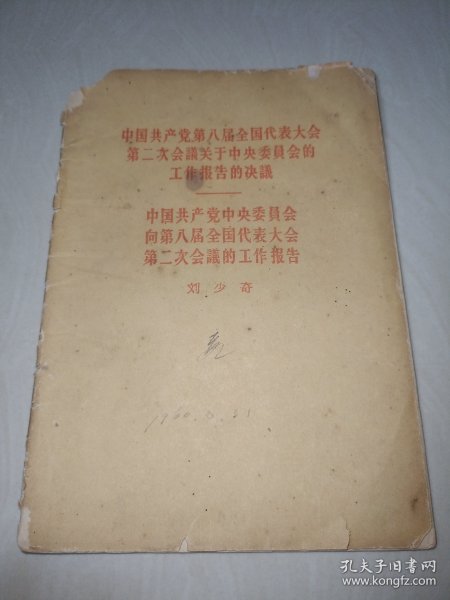 中国共产党第八届全国代表大会
第二次会議关于中央委員会的
工作报告的决議
中国共产党中央委員会
向第八届全国代表大会
第二次会議的工作报告
刘少奇
孔夫子旧书网
www.kongfz.com